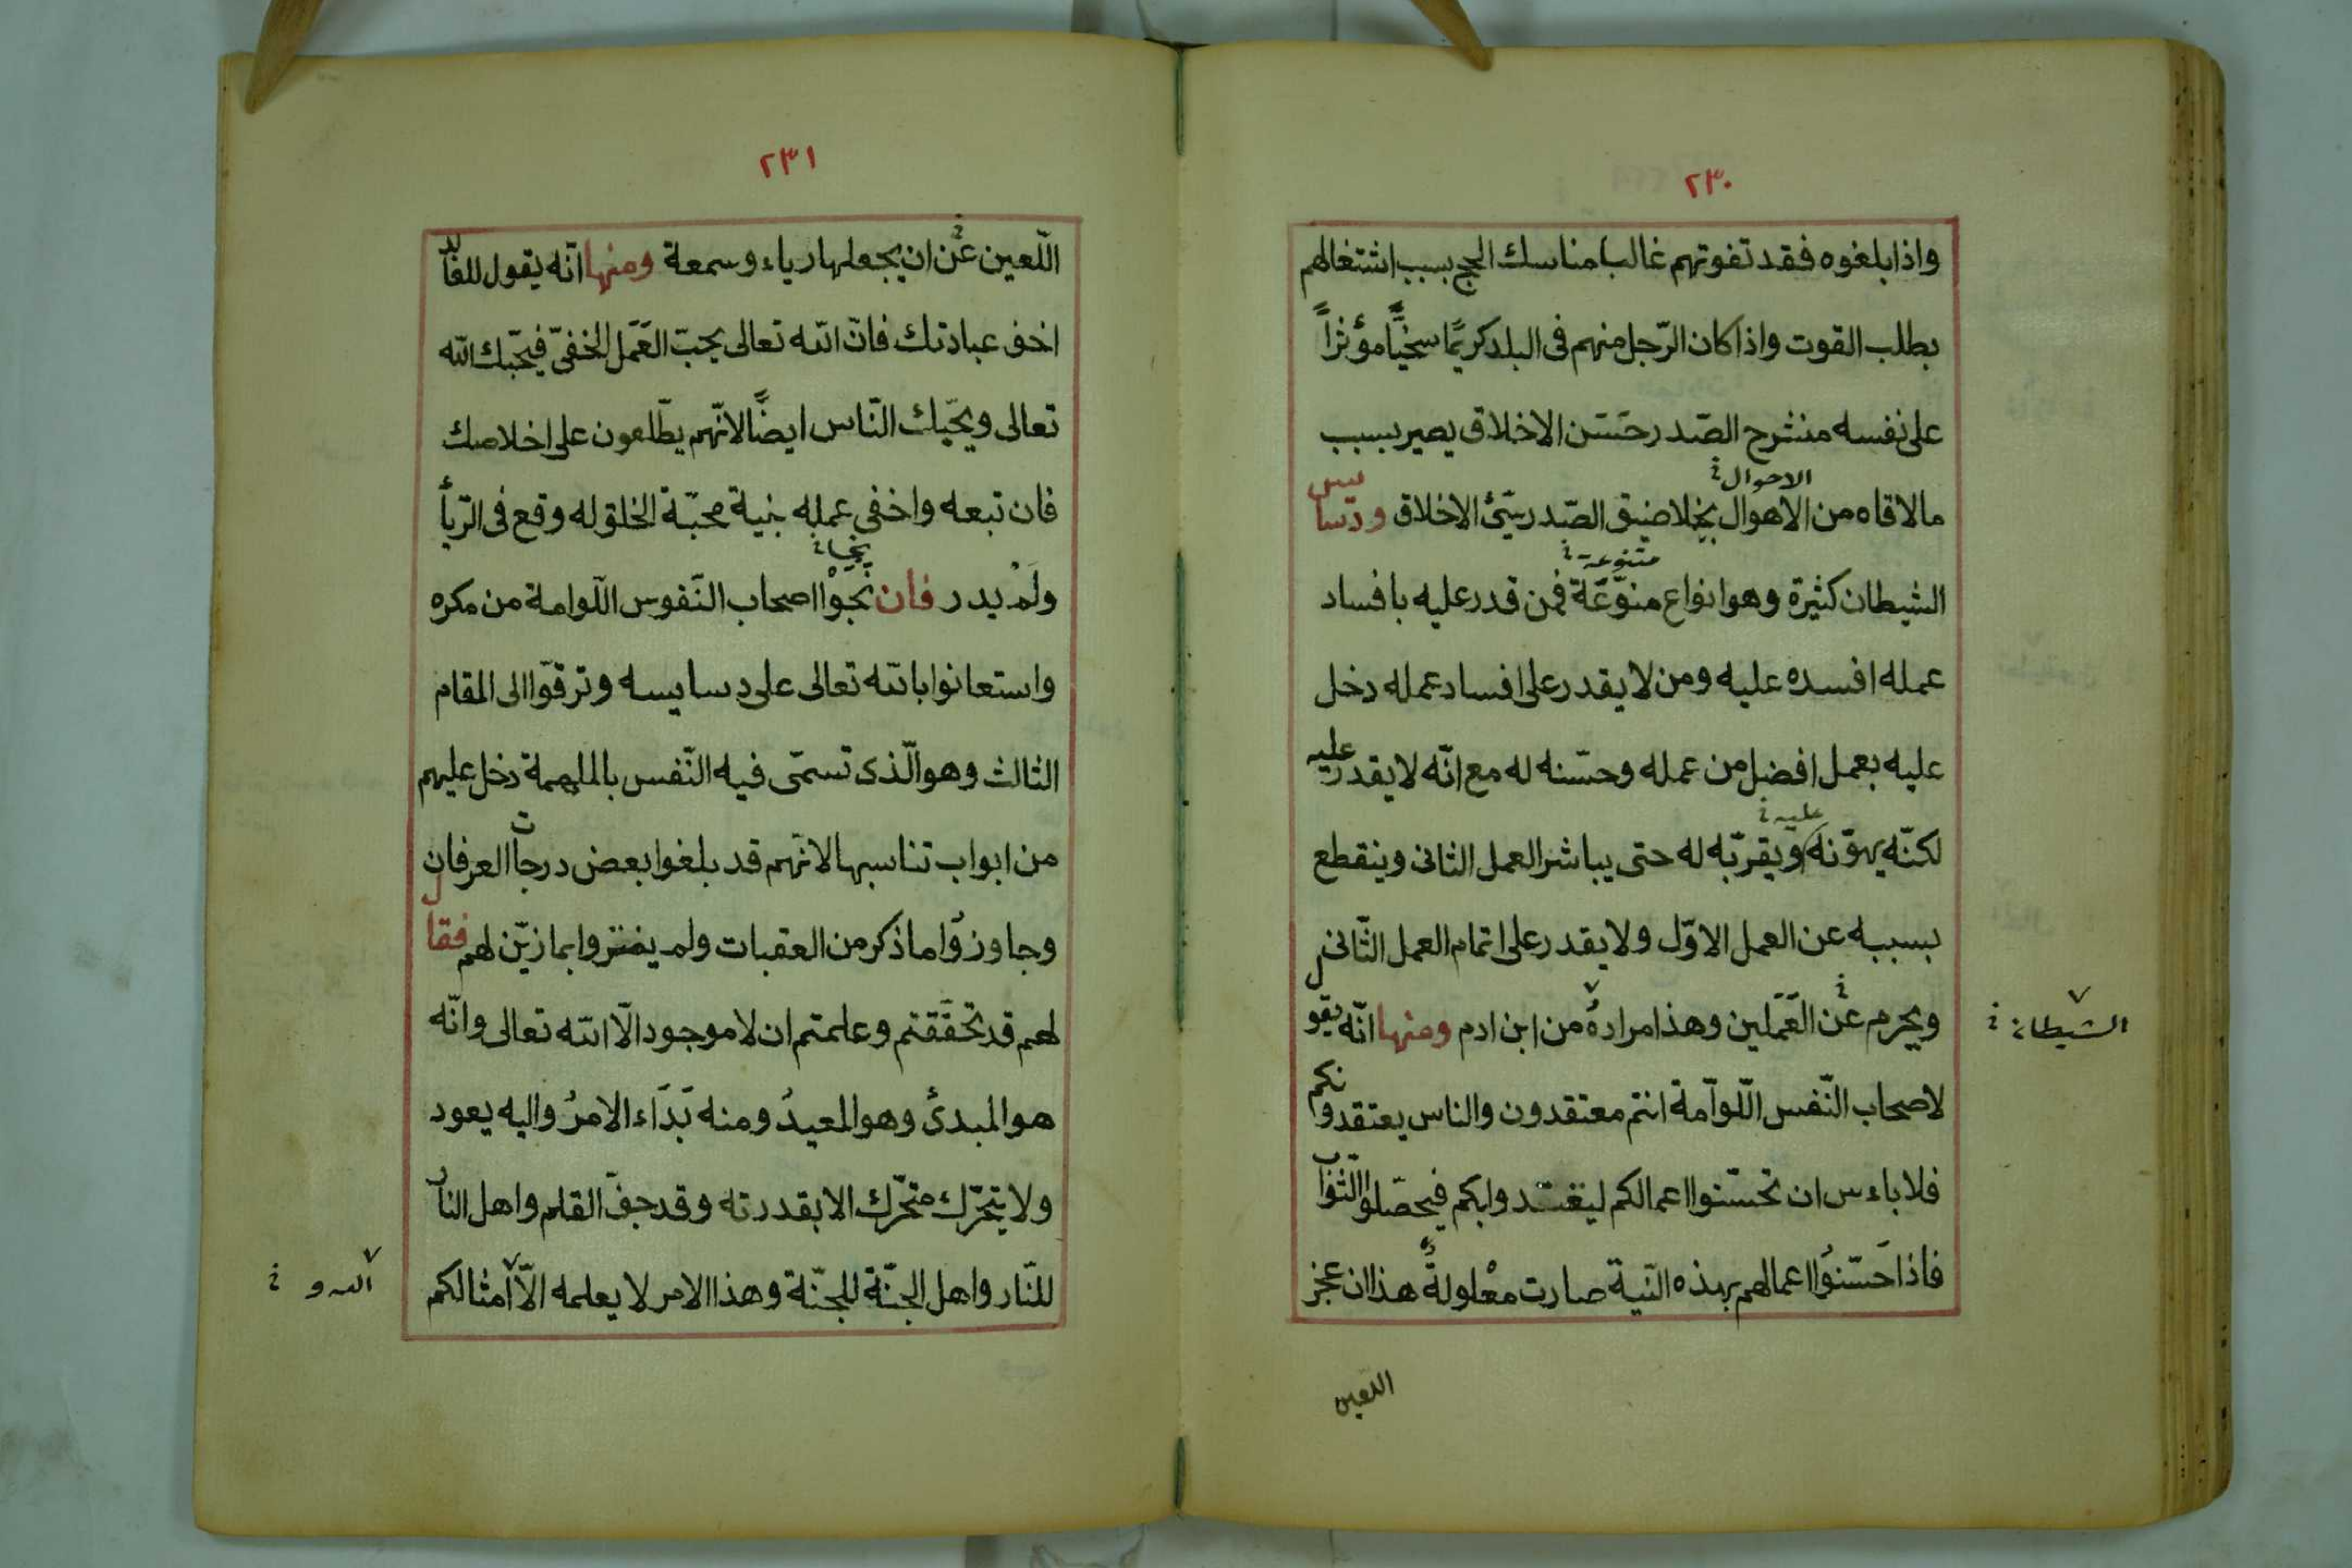 ٢٣٠
واذا بلغوه فقد تفوتهم غالبا مناسك الحج بسبب اشتغالهم
بطلب القوت واذا كان الرّجل منهم فى البلد كريمًا سخيًّا مؤثراً
على نفسه منشرح الصّدر حسَن الاخلاق يصير بسبب
الاحوال
مالاقاه من الاهوال بخيلا ضيق الصّدر سيّئ الاخلاق ودسايس
متنوعة
الشيطان كثيرة وهو انواع منوّعَة فمن قدر عليه بافساد
عمله افسده عليه ومن لا يقدر على افساد عمله دخل
عليه بعمل افضل من عمله وحسّنه له مع انّه لا يقدر عليه
عليه
لكنّه يهوّنه ويقرّبه له حتى يباشر العمل الثانى وينقطع
بسببه عن العمل الاوّل ولا يقدر على اتمام العمل الثّانى
ويحرم عَن العَمَلين وهذا مرادهُ من ابن ادم ومنها انّه يقول
الشيطان
لاصحاب النّفس اللّوآمة انتم معتقدون والناس يعتقدونكم
فلا باءس ان تحسّنوا اعمالكم ليقتدوا بكم فيحصّلوا الثّواب
فاذا حَسّنوُا اعمالهم بهذه النّية صارت معْلولةً هذا ان عجز
اللعين
٢٣١
اللّعين عَن ان يجعلها رياء وسمعة ومنها انّه يقول للعابد
اخف عبادتك فانّ اللّه تعالى يحبّ العَمَل الخفىّ فيحّبك اللّه
تعالى ويحّبك النّاس ايضًا لانّهم يطّلعون على اخلاصك
فان تبعه واخفى عمله بنية محبّة الخلق له وقع فى الرّيأ
ولَمْ يدر فان نَجَوْا اصحاب النّفوس اللّوامة من مكره
واستعانوا باللّه تعالى على دسايسه وترقّوا الى المقام
الثالث وهو الّذى تسمّى فيه النّفس بالملهمة دخل عليهم
من ابواب تناسبها لانّهم قد بلغوا بعض درجات العرفان
وجاوزوُا ما ذكر من العقبات ولم يغتروا بما زيّن لهم فقال
لهم قد تحَقّقتم وعلمتم ان لا موجود الّا اللّه تعالى وانّه
هو المبدئ وهو المعيدُ ومنه بَدَاء الامرُ واليه يعود
ولا يتحرّك متحرّك الا بقدرته وقد جفّ القلم واهل النار
للنّار واهل الجنّة للجنّة وهذا الامر لا يعلمه الّا امثالكم